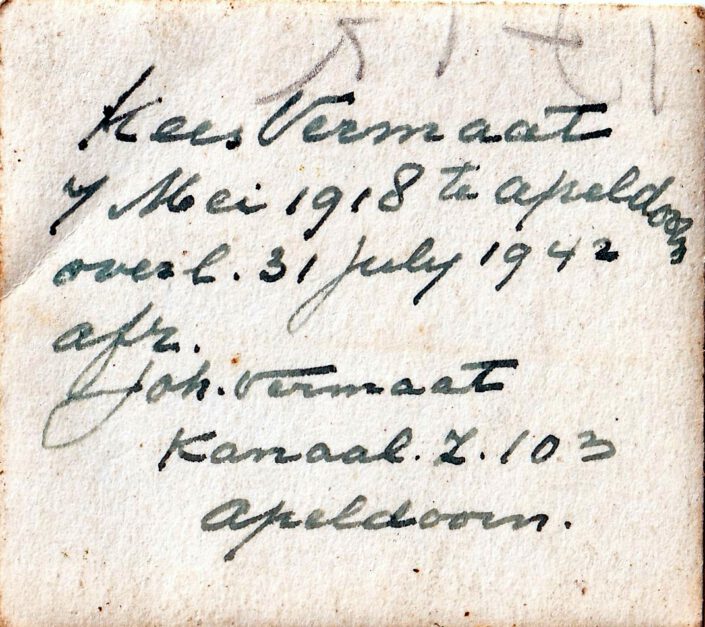 Kees Vermaat
7 Mei 1918 te apeldoorn
overl. 31 july 1942
afz.
Joh. Vermaat
Kanaal. Z. 103
apeldoorn.